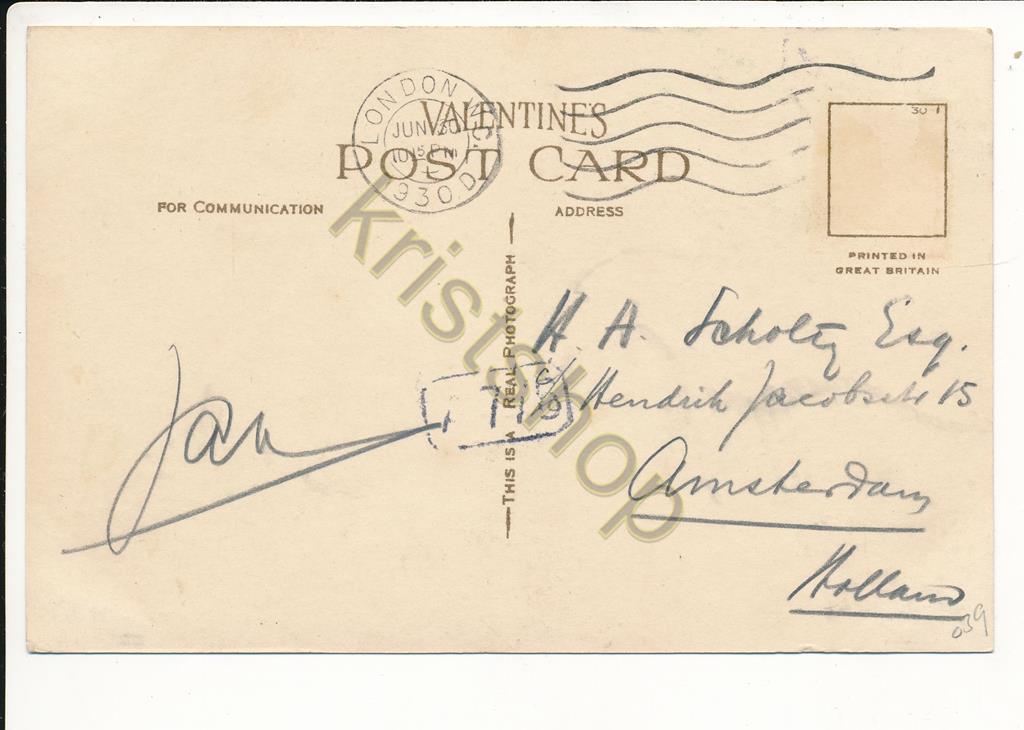 LONDON N.S.D.O.
JUN 30
10.15 PM
1930
VALENTINE'S
POST CARD
30-1
FOR COMMUNICATION
ADDRESS
PRINTED IN
GREAT BRITAIN
THIS IS A REAL PHOTOGRAPH
kristshop
Jan
H. A. Scholtz Esq.
Hendrik Jacobsstr 15
Amsterdam
Holland
039